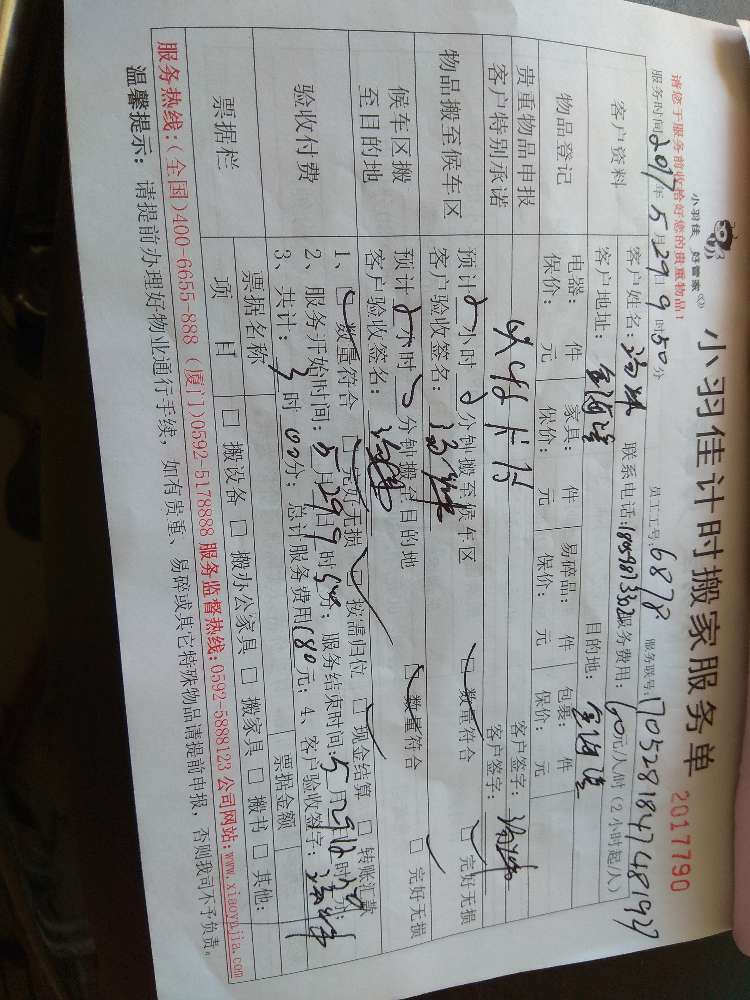 小羽佳 好管家
小羽佳计时搬家服务单
2017790
请您于服务前收拾好您的贵重物品!
服务时间:2017年5月29日9时50分
员工工号:6878
服务联号:1705281847481927
客户资料
客户姓名:
联系电话:
服务费用:60元/人/时(2小时起/人)
客户地址:
目的地:
物品登记
电器: 件 家具: 件 易碎品: 件 包裹: 件
保价: 元 保价: 元 保价: 元 保价: 元
贵重物品申报
客户特别承诺
客户签字:
客户签字:
物品搬至候车区
预计 小时 分钟搬至候车区 数量符合 完好无损
客户验收签名:
候车区搬
至目的地
预计 小时 分钟搬至目的地 数量符合 完好无损
客户验收签名:
验收付费
1、 数量符合 完好无损 按需归位 现金结算 转账汇款
2、服务开始时间:5月29日9时50分;服务结束时间:5月29日12时50分;
3、共计:3时00分;总计服务费用180元;4、客户验收签字:
票据栏
票据名称 票据金额
项 目 搬设备 搬办公家具 搬家具 搬书 其他:
服务热线:(全国)400-6655-888 (厦门)0592-5178888 服务监督热线:0592-5888123 公司网站:www.xiaoyujia.com
温馨提示: 请提前办理好物业通行手续,如有贵重、易碎或其它特殊物品请提前申报,否则我司不予负责。